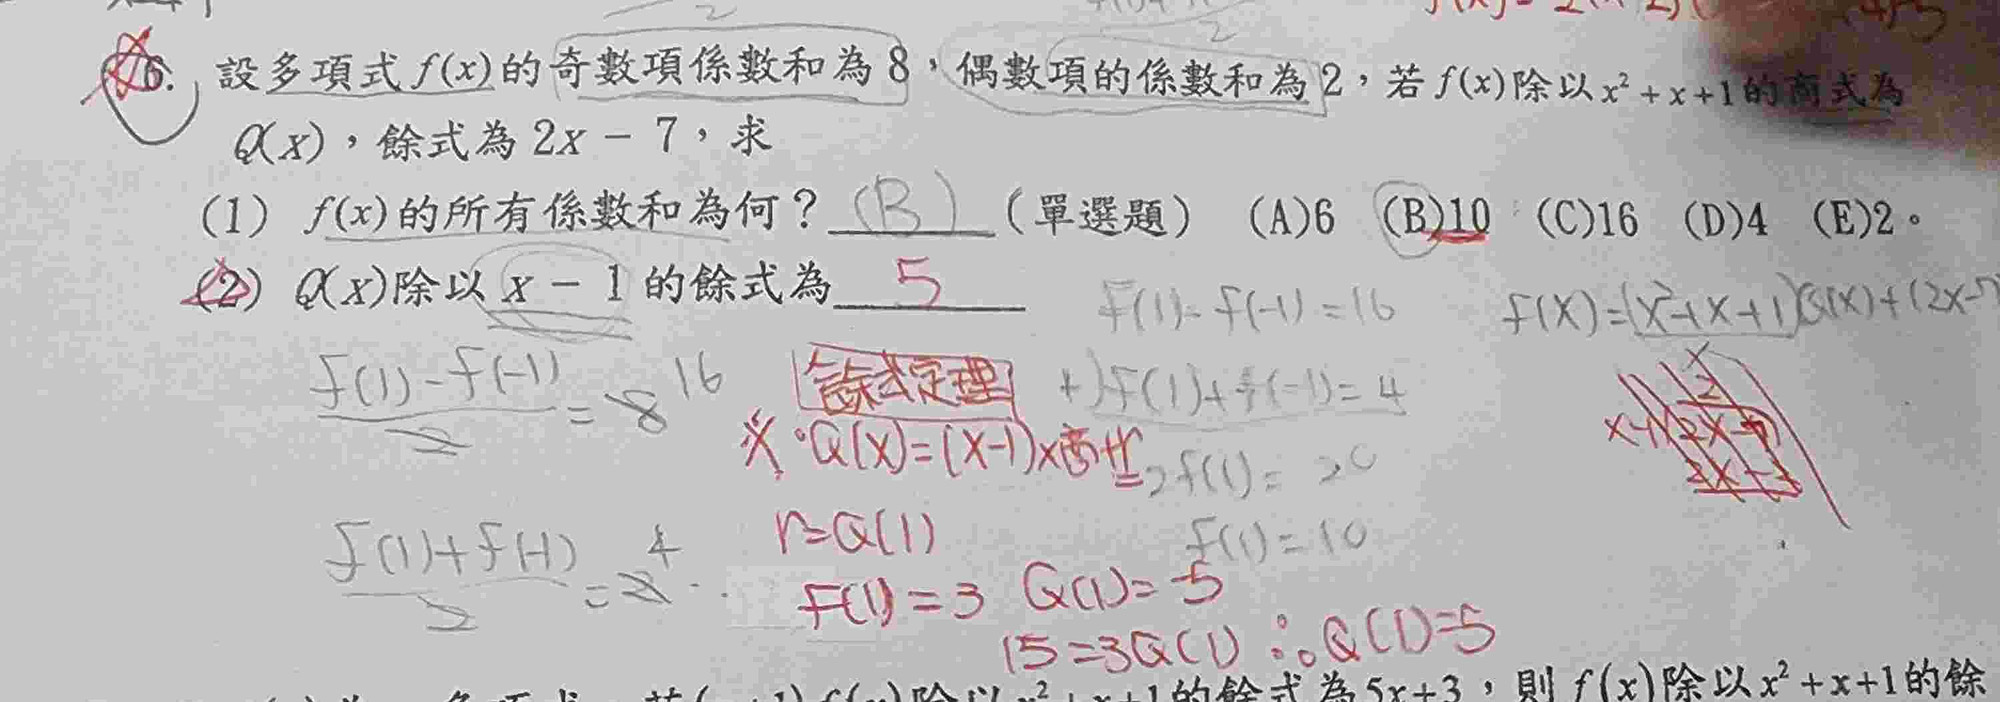 6. 設多項式f(x)的奇數項係數和為8，偶數項的係數和為2，若f(x)除以x²+x+1的商式為
Q(x)，餘式為2x-7，求
(1) f(x)的所有係數和為何？(B)（單選題） (A)6 (B)10 (C)16 (D)4 (E)2。
(2) Q(x)除以x-1的餘式為 5
f(1)-f(-1)=16
f(x)=(x²+x+1)Q(x)+(2x-7)
f(1)-f(-1)/2=8 16
餘式定理
+)f(1)+f(-1)=4
※ Q(x)=(x-1)×商+r
2f(1)=20
f(1)=10
r=Q(1)
f(1)+f(-1)/2=2 4
F(1)=3 Q(1)=5
15=3Q(1) ∴Q(1)=5
的餘式為5x+3，則f(x)除以x²+x+1的餘